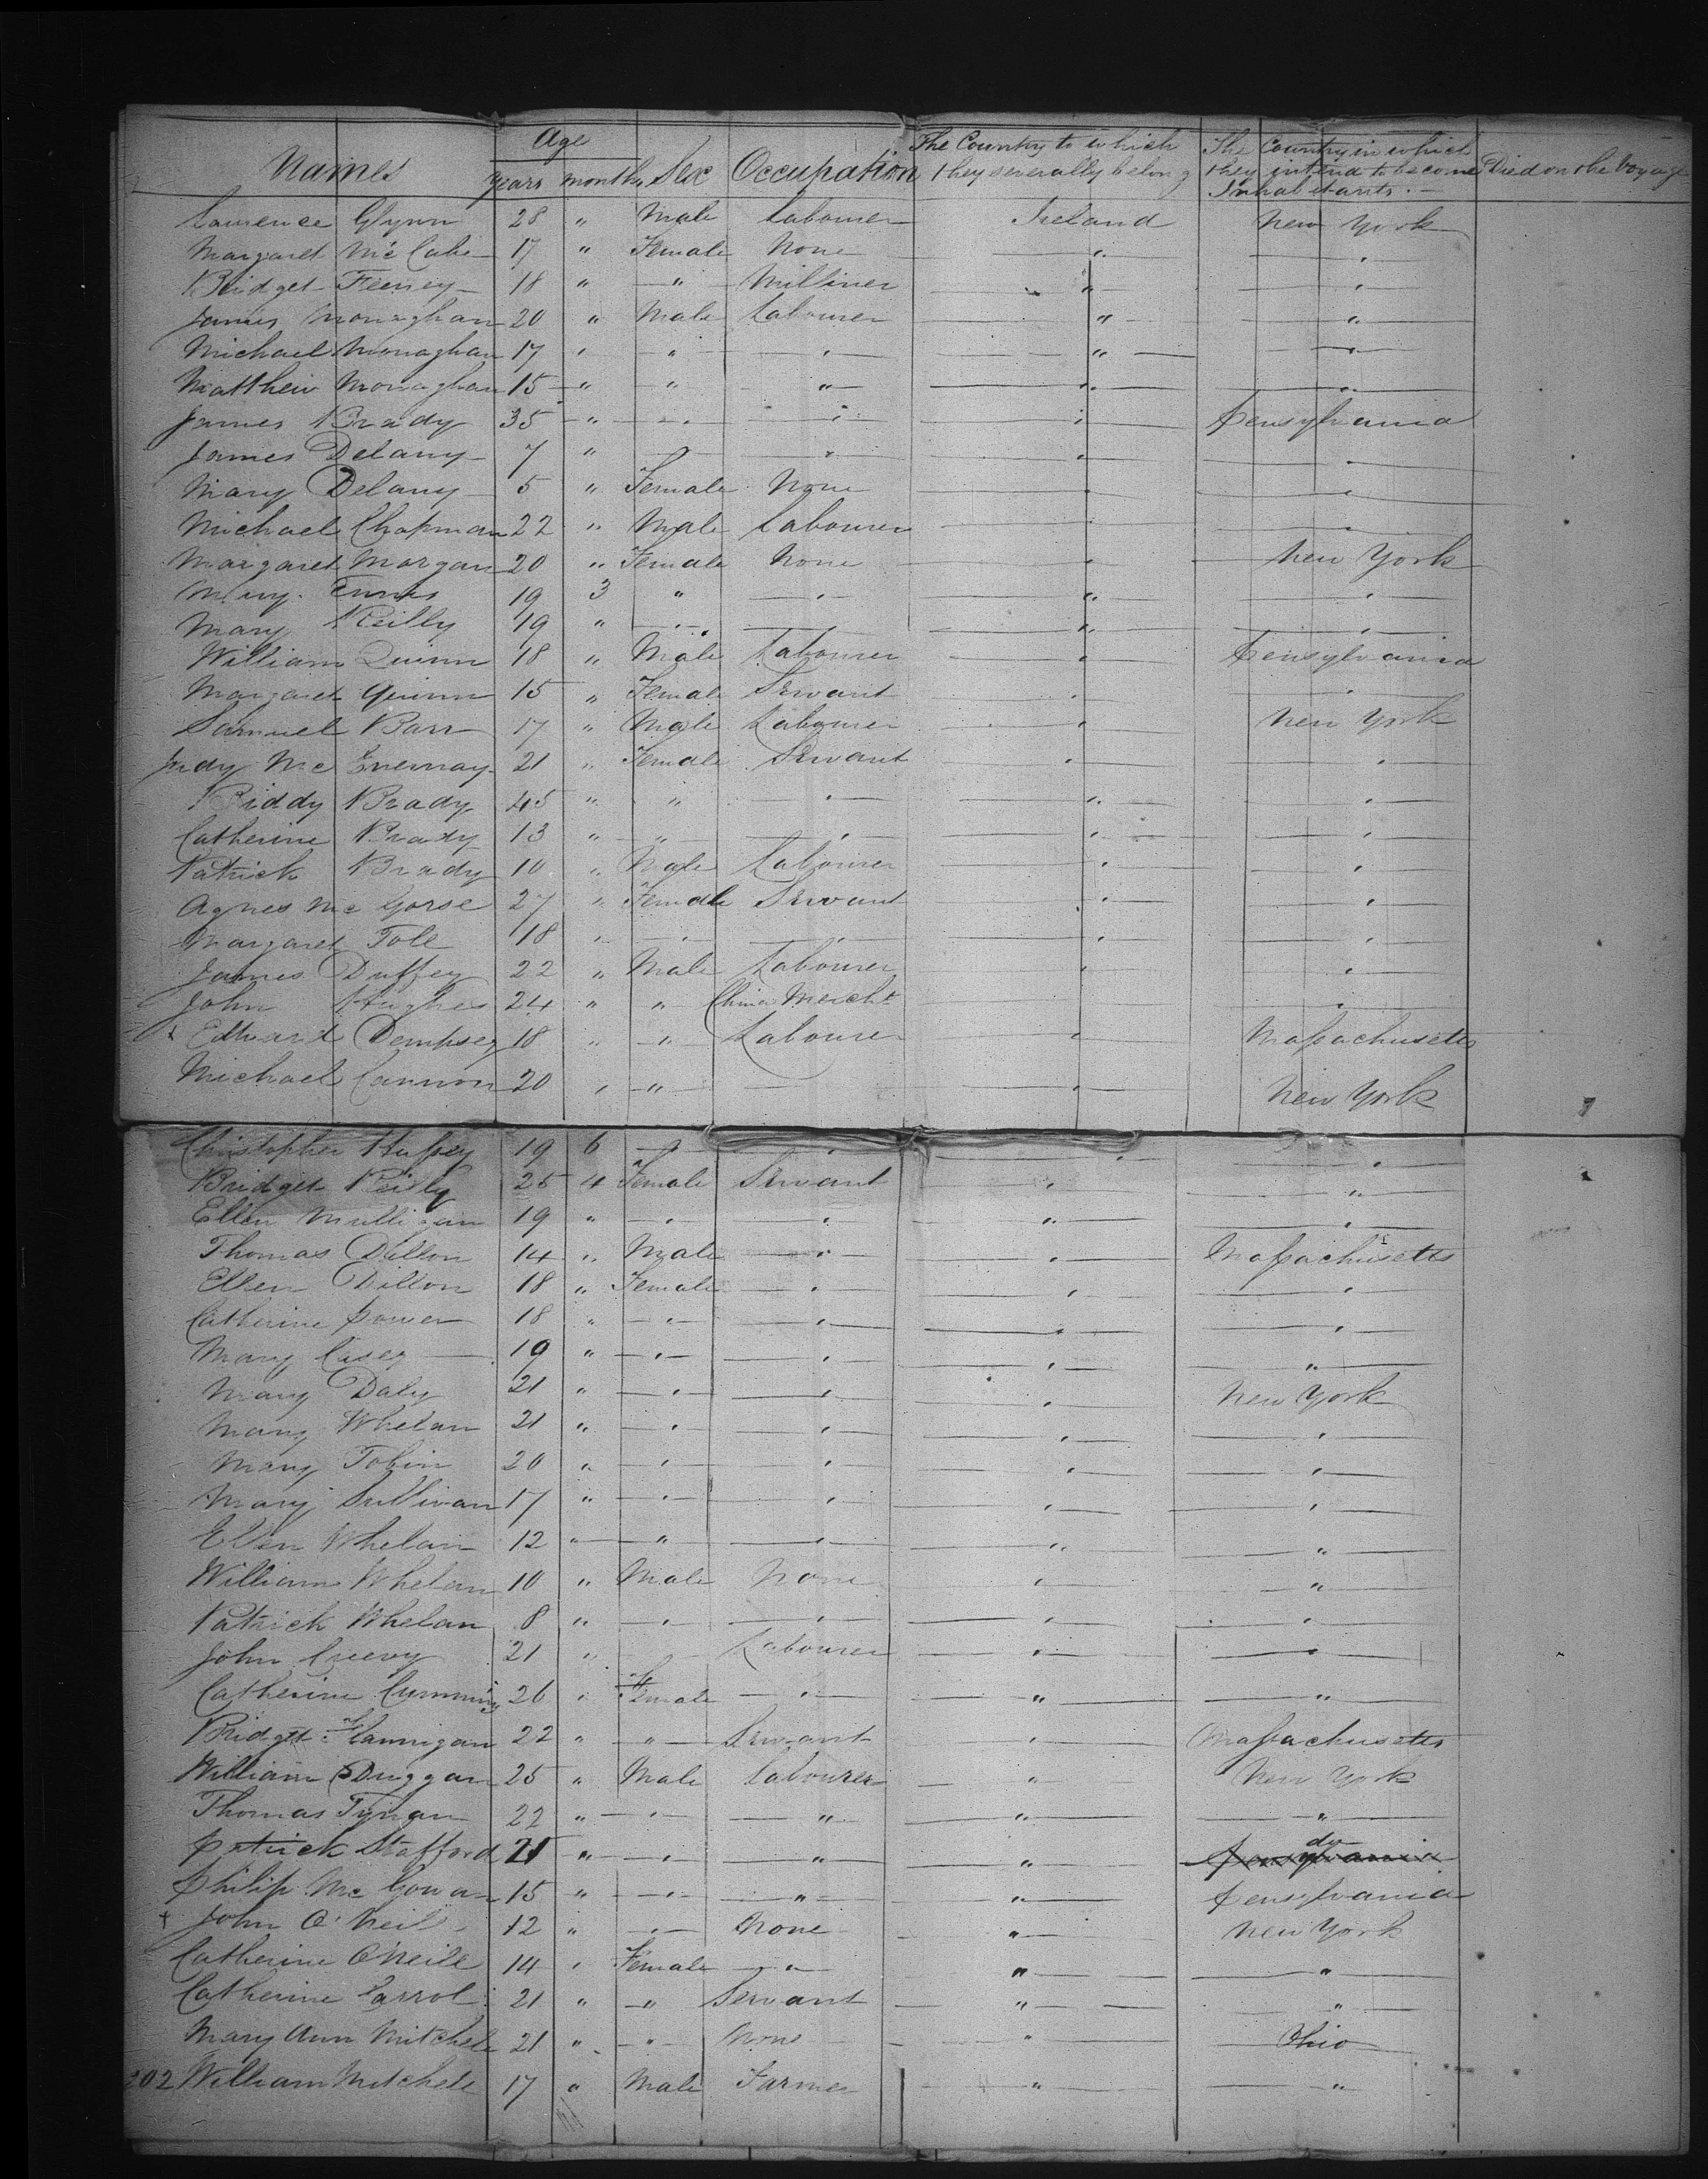 Names Age years months Sex Occupation The Country to which they severally belong The Country in which they intend to become Inhabitants. Died on the Voyage
Laurence Glynn 28 " Male Labourer Ireland New York
Margaret McCabe 17 " Female None " "
Bridget Feeney 18 " " Milliner " "
James Monaghan 20 " Male Labourer " "
Michael Monaghan 17 " " " " "
Matthew Monaghan 15 " " " " "
James Brady 35 " " " " Pensylvania
James Delany 7 " " " " "
Mary Delany 5 " Female None " "
Michael Chapman 22 " Male Labourer " "
Margaret Morgan 20 " Female None " New York
Mary Ennis 19 3 " " " "
Mary Reilly 19 " " " " "
William Quinn 18 " Male Labourer " Pensylvania
Margaret Quinn 15 " Female Servant " "
Samuel Barr 17 " Male Labourer " New York
Judy Mc Enernay 21 " Female Servant " "
Biddy Brady 45 " " " " "
Catherine Brady 13 " " " " "
Patrick Brady 10 " Male Labourer " "
Agnes Mc Gorse 27 " Female Servant " "
Margaret Tole 18 " " " " "
James Duffey 22 " Male Labourer " "
John Hughes 24 " " China Mercht " "
x Edward Dempsey 18 " " Labourer " Massachusetts
Michael Cannon 20 " " " New York
Christopher Hussey 19 6 " " " "
Bridget Reily 25 4 Female Servant " "
Ellen Mulligan 19 " " " " "
Thomas Dillon 14 " Male " " Massachusetts
Ellen Dillon 18 " Female " " "
Catherine Power 18 " " " " "
Mary Casey 19 " " " " "
Mary Daly 21 " " " " New York
Mary Whelan 21 " " " " "
Mary Tobin 20 " " " " "
Mary Sullivan 17 " " " " "
Ellen Whelan 12 " " " " "
William Whelan 10 " Male None " "
Patrick Whelan 8 " " " " "
John Creevy 21 " Labourer " "
Catherine Cumming 26 " Female " " "
Bridget Flannigan 22 " " Servant " Massachusetts
William Duggan 25 " Male Labourer " New York
Thomas Tynan 22 " " " " "
Patrick Stafford 21 " " " " do Pensylvania
Philip Mc Gowan 15 " " " " Pensylvania
x John O'Neil 12 " " None " New York
Catherine O'Neile 14 " Female " " "
Catherine Carrol 21 " " Servant " "
Mary Ann Mitchele 21 " " None " Ohio
202 William Mitchele 17 " Male Farmer " "